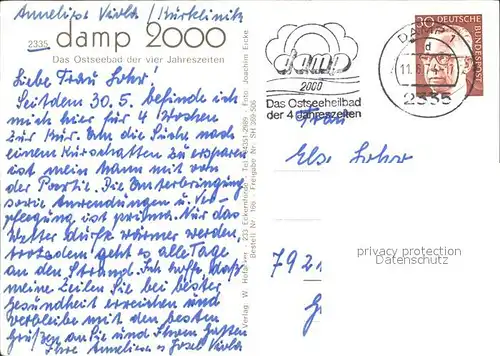 Annelise Viola / Kurklinik
2335 damp 2000
Das Ostseebad der vier Jahreszeiten
Liebe Frau Lohr!
Seitdem 30.5. befinde ich
mich hier für 4 Wochen
zur Kur. Um die Suche nach
einem Kurschatten zu ersparen
ist mein Mann mit von
der Partie. Die Unterbringung
sowie Anwendungen u. Ver-
pflegung ist prima. Nur das
Wetter dürfte wärmer werden,
trotzdem geht es alle Tage
an den Strand. Ich hoffe, daß
meine Zeilen Sie bei bester
Gesundheit erreichen und
verbleibe mit den besten
Grüßen an Sie und Ihren Gatten
Ihre Annelise u. Josef Viola
Verlag W.
233 Eckernförde
Foto Joachim
Bestell Nr.
Freigabe Nr. SH
damp
2000
Das Ostseeheilbad
der 4 Jahreszeiten
DAMP 1
d
11.6.74
2335
30
DEUTSCHE
BUNDESPOST
Frau
Else Lohr
7921
privacy protection
Datenschutz